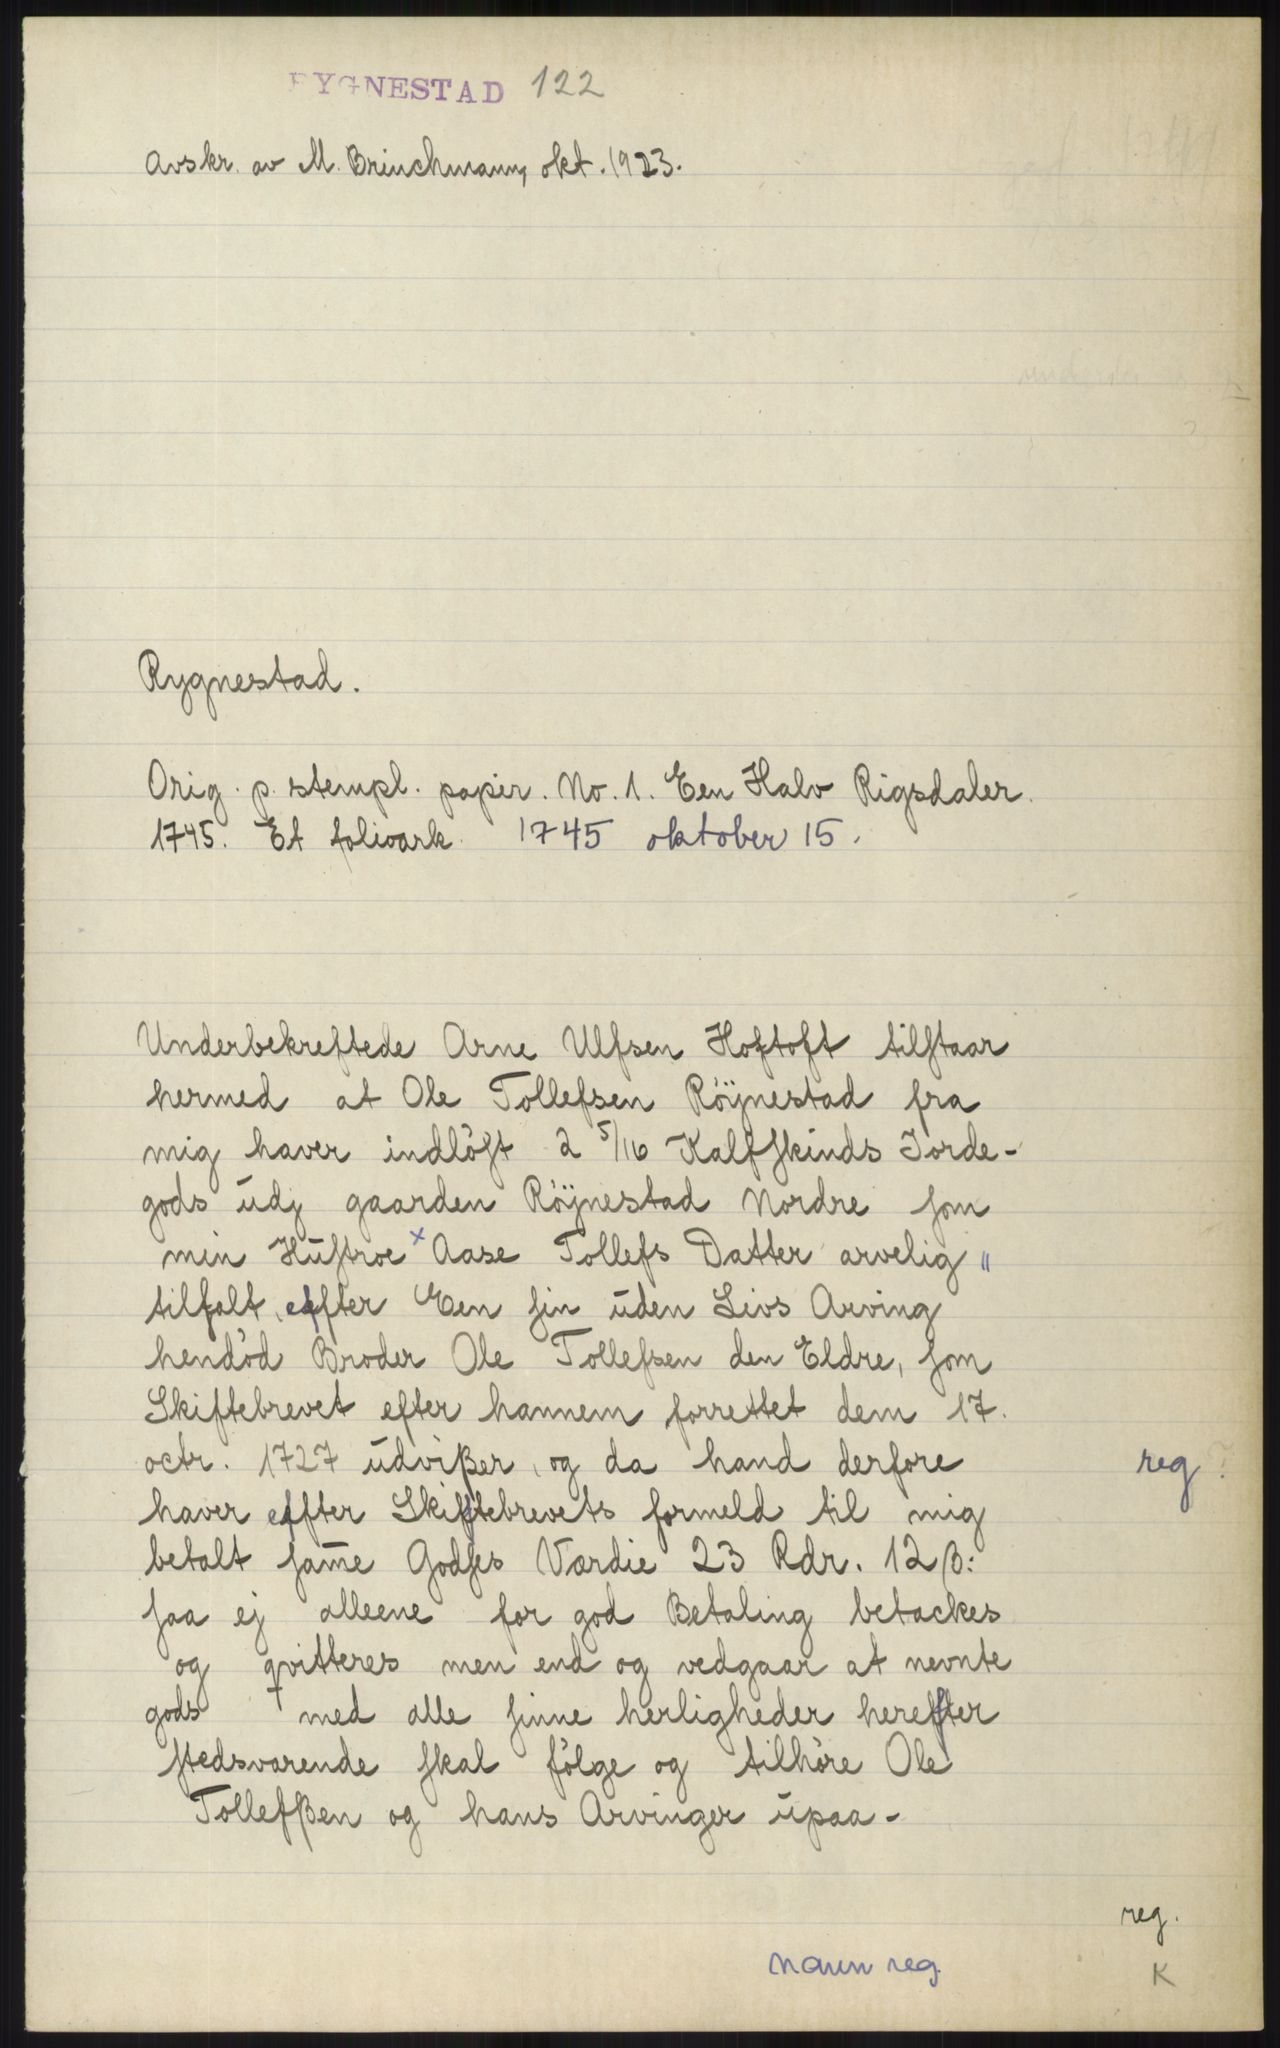 RYGNESTAD 122
Avskr. av M. Brinchmann, okt. 1923.
Rygnestad.
Orig. p. stempl. papir. No. 1. Een Halv Rigsdaler.
1745. Et folioark. 1745 oktober 15.
Underbekreftede Arne Ulfsen Hoftoft tilstaar
hermed at Ole Tollefsen Röÿnestad fra
mig haver indlöst 2 5/16 Kalfskinds Jorde-
gods udj gaarden Röÿnestad Nordre som
min Hustroe x Aase Tollefs Datter arvelig "
tilfalt effter Een sin uden Livs Arving
hendöd Broder Ole Tollefsen den Eldre, som
Skiftebrevet efter hannem forrettet dem 17.
octr. 1727 udvißer, og da hand derfore reg ?
haver effter Skiftebrevets formeld til mig
betalt same Godses Værdie 23 Rdr. 12 β:
saa ej alleene for god Betaling betackes
og qvitteres men end og vedgaar at nevnte
gods med alle sinne herligheder herefter
stedsvarende skal fölge og tilhöre Ole
Tollefßen og hans Arvinger upaa-
reg.
navn reg. K